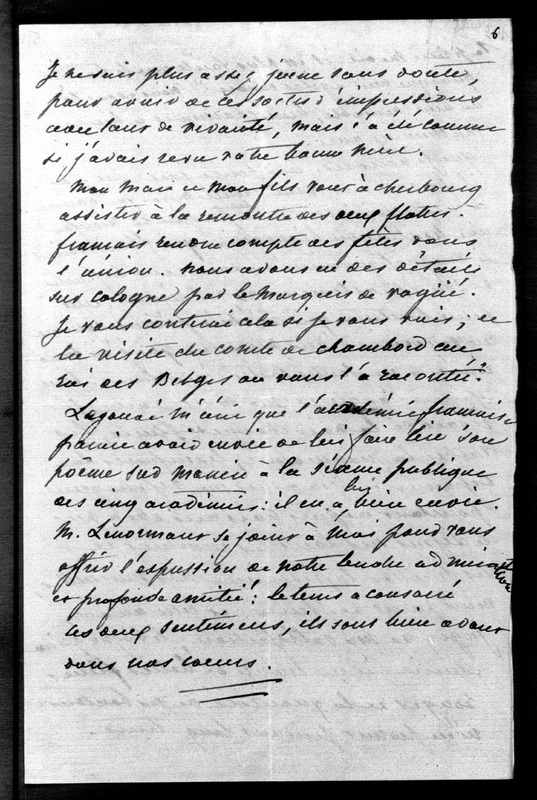 6
Je ne suis plus assez jeune sans doute,
pour avoir de ces sortes d'impressions
avec tant de vivacité, mais ç'a été comme
si j'avais revu votre bonne mère.
Mon mari et mon fils vont à cherbourg
assister à la rencontre des deux flottes.
françois rendra compte des fêtes dans
l'union. nous avons eu des détails
sur cologne par le marquis de vogüé.
Je vous conterai cela si je vous vois ; et
la visite du comte de chambord au
roi des Belges ou vous l'a racontée ?
m'écrit que l'académie française
avait envie de lui faire lire son
poème sur à la séance publique
des cinq académies : il en a, lui, bien envie.
M. Lenormant se joint à moi pour vous
offrir l'expression de notre tendre admiration
et profonde amitié : le tems a consacré
ces deux sentimens, ils sont bien avant
dans nos coeurs.